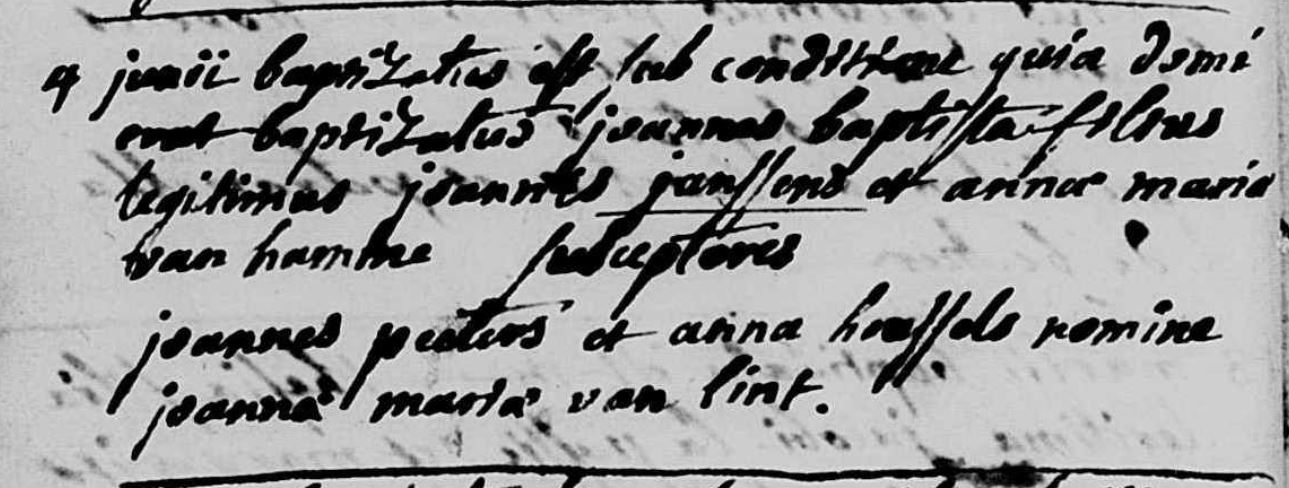 4 junii baptizatus est sub conditione quia domi
erat baptizatus joannes baptista filius
legitimus joannes janssens et anna maria
van hamme susceptores
joannes peeters et anna houssels nomine
joanna maria van lint.